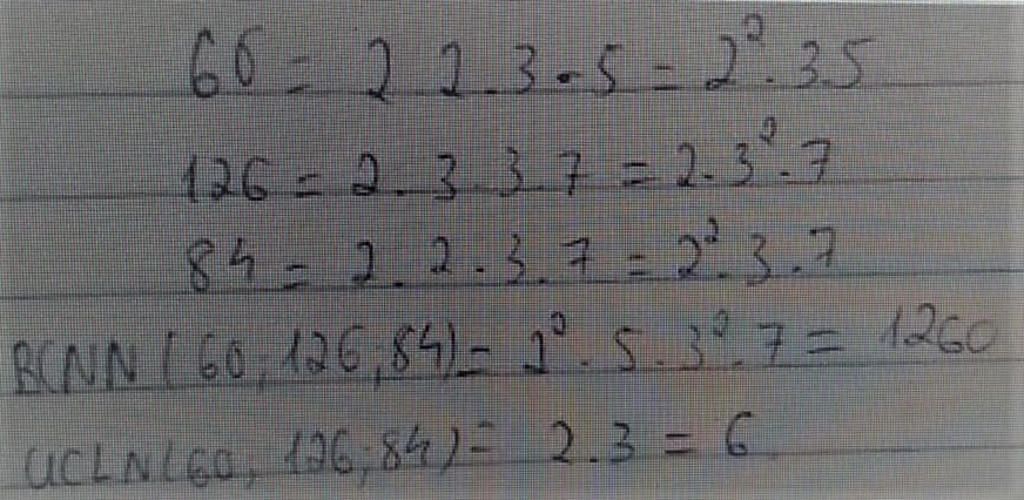 60 = 2 2 . 3 . 5 = 2² . 3 5
126 = 2 . 3 3 . 7 = 2 . 3² . 7
84 = 2 . 2 . 3 . 7 = 2² . 3 . 7
BCNN ( 60 ; 126 ; 84 ) = 2² . 5 . 3² . 7 = 1260
UCLN ( 60 ; 126 ; 84 ) = 2 . 3 = 6